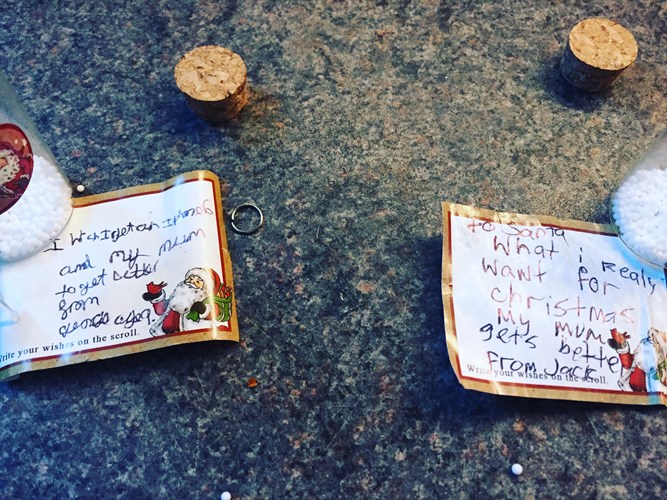 I wish I get an
and my mum
to get better
from
Write your wishes on the scroll.
to Santa
What i Realy
want for
christmas
My mum
gets better
From Jack
Write your wishes on the scroll.